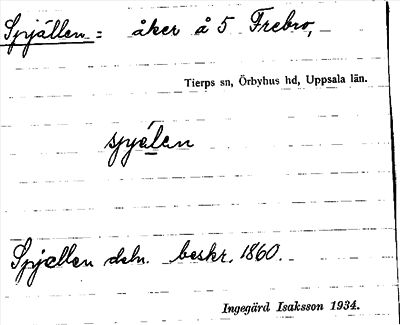 Spjällen = åker å 5 Frebro,
Tierps sn, Örbyhus hd, Uppsala län.
spjälen
Spjællen dsln. beskr. 1860.
Ingegärd Isaksson 1934.